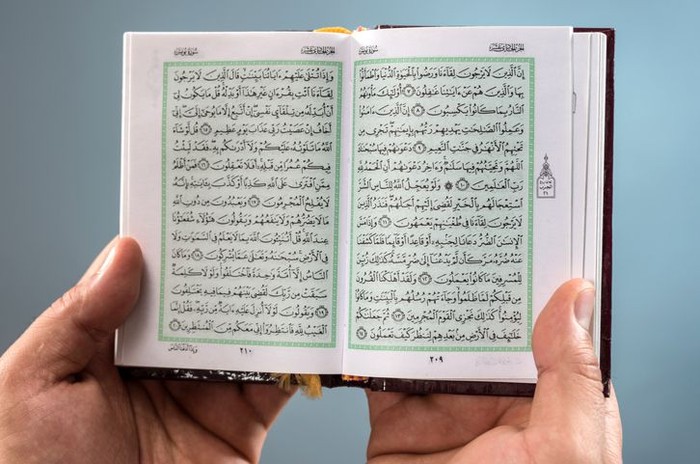 الجزء الحادي عشر سورة يونس
إِنَّ ٱلَّذِينَ لَا يَرْجُونَ لِقَآءَنَا وَرَضُوا۟ بِٱلْحَيَوٰةِ ٱلدُّنْيَا وَٱطْمَأَنُّوا۟
بِهَا وَٱلَّذِينَ هُمْ عَنْ ءَايَٰتِنَا غَٰفِلُونَ ٧ أُو۟لَٰٓئِكَ مَأْوَىٰهُمُ
ٱلنَّارُ بِمَا كَانُوا۟ يَكْسِبُونَ ٨ إِنَّ ٱلَّذِينَ ءَامَنُوا۟
وَعَمِلُوا۟ ٱلصَّٰلِحَٰتِ يَهْدِيهِمْ رَبُّهُم بِإِيمَٰنِهِمْ تَجْرِى مِن
تَحْتِهِمُ ٱلْأَنْهَٰرُ فِى جَنَّٰتِ ٱلنَّعِيمِ ٩ دَعْوَىٰهُمْ فِيهَا سُبْحَٰنَكَ
ٱللَّهُمَّ وَتَحِيَّتُهُمْ فِيهَا سَلَٰمٌ وَءَاخِرُ دَعْوَىٰهُمْ أَنِ ٱلْحَمْدُ لِلَّهِ
رَبِّ ٱلْعَٰلَمِينَ ١٠ ۞ وَلَوْ يُعَجِّلُ ٱللَّهُ لِلنَّاسِ ٱلشَّرَّ
ٱسْتِعْجَالَهُم بِٱلْخَيْرِ لَقُضِىَ إِلَيْهِمْ أَجَلُهُمْ فَنَذَرُ ٱلَّذِينَ
لَا يَرْجُونَ لِقَآءَنَا فِى طُغْيَٰنِهِمْ يَعْمَهُونَ ١١ وَإِذَا مَسَّ
ٱلْإِنسَٰنَ ٱلضُّرُّ دَعَانَا لِجَنۢبِهِۦٓ أَوْ قَاعِدًا أَوْ قَآئِمًا فَلَمَّا كَشَفْنَا
عَنْهُ ضُرَّهُۥ مَرَّ كَأَن لَّمْ يَدْعُنَآ إِلَىٰ ضُرٍّ مَّسَّهُۥ كَذَٰلِكَ زُيِّنَ
لِلْمُسْرِفِينَ مَا كَانُوا۟ يَعْمَلُونَ ١٢ وَلَقَدْ أَهْلَكْنَا ٱلْقُرُونَ
مِن قَبْلِكُمْ لَمَّا ظَلَمُوا۟ وَجَآءَتْهُمْ رُسُلُهُم بِٱلْبَيِّنَٰتِ وَمَا كَانُوا۟
لِيُؤْمِنُوا۟ كَذَٰلِكَ نَجْزِى ٱلْقَوْمَ ٱلْمُجْرِمِينَ ١٣ ثُمَّ جَعَلْنَٰكُمْ
خَلَٰٓئِفَ فِى ٱلْأَرْضِ مِنۢ بَعْدِهِمْ لِنَنظُرَ كَيْفَ تَعْمَلُونَ ١٤
٢٠٩
الحزب
٢١
الجزء الحادي عشر سورة يونس
وَإِذَا تُتْلَىٰ عَلَيْهِمْ ءَايَاتُنَا بَيِّنَٰتٍ قَالَ ٱلَّذِينَ لَا يَرْجُونَ
لِقَآءَنَا ٱئْتِ بِقُرْءَانٍ غَيْرِ هَٰذَآ أَوْ بَدِّلْهُ قُلْ مَا يَكُونُ لِىٓ
أَنْ أُبَدِّلَهُۥ مِن تِلْقَآئِ نَفْسِىٓ إِنْ أَتَّبِعُ إِلَّا مَا يُوحَىٰٓ إِلَىَّ إِنِّىٓ
أَخَافُ إِنْ عَصَيْتُ رَبِّى عَذَابَ يَوْمٍ عَظِيمٍ ١٥ قُل لَّوْ شَآءَ
ٱللَّهُ مَا تَلَوْتُهُۥ عَلَيْكُمْ وَلَآ أَدْرَىٰكُم بِهِۦ فَقَدْ لَبِثْتُ
فِيكُمْ عُمُرًا مِّن قَبْلِهِۦٓ أَفَلَا تَعْقِلُونَ ١٦ فَمَنْ أَظْلَمُ
مِمَّنِ ٱفْتَرَىٰ عَلَى ٱللَّهِ كَذِبًا أَوْ كَذَّبَ بِـَٔايَٰتِهِۦٓ إِنَّهُۥ
لَا يُفْلِحُ ٱلْمُجْرِمُونَ ١٧ وَيَعْبُدُونَ مِن دُونِ ٱللَّهِ
مَا لَا يَضُرُّهُمْ وَلَا يَنفَعُهُمْ وَيَقُولُونَ هَٰٓؤُلَآءِ شُفَعَٰٓؤُنَا
عِندَ ٱللَّهِ قُلْ أَتُنَبِّـُٔونَ ٱللَّهَ بِمَا لَا يَعْلَمُ فِى ٱلسَّمَٰوَٰتِ وَلَا
فِى ٱلْأَرْضِ سُبْحَٰنَهُۥ وَتَعَٰلَىٰ عَمَّا يُشْرِكُونَ ١٨ وَمَا كَانَ
ٱلنَّاسُ إِلَّآ أُمَّةً وَٰحِدَةً فَٱخْتَلَفُوا۟ وَلَوْلَا كَلِمَةٌ
سَبَقَتْ مِن رَّبِّكَ لَقُضِىَ بَيْنَهُمْ فِيمَا فِيهِ يَخْتَلِفُونَ
١٩ وَيَقُولُونَ لَوْلَآ أُنزِلَ عَلَيْهِ ءَايَةٌ مِّن رَّبِّهِۦ فَقُلْ إِنَّمَا
ٱلْغَيْبُ لِلَّهِ فَٱنتَظِرُوٓا۟ إِنِّى مَعَكُم مِّنَ ٱلْمُنتَظِرِينَ ٢٠
٢١٠
وإذا أذقنا الناس